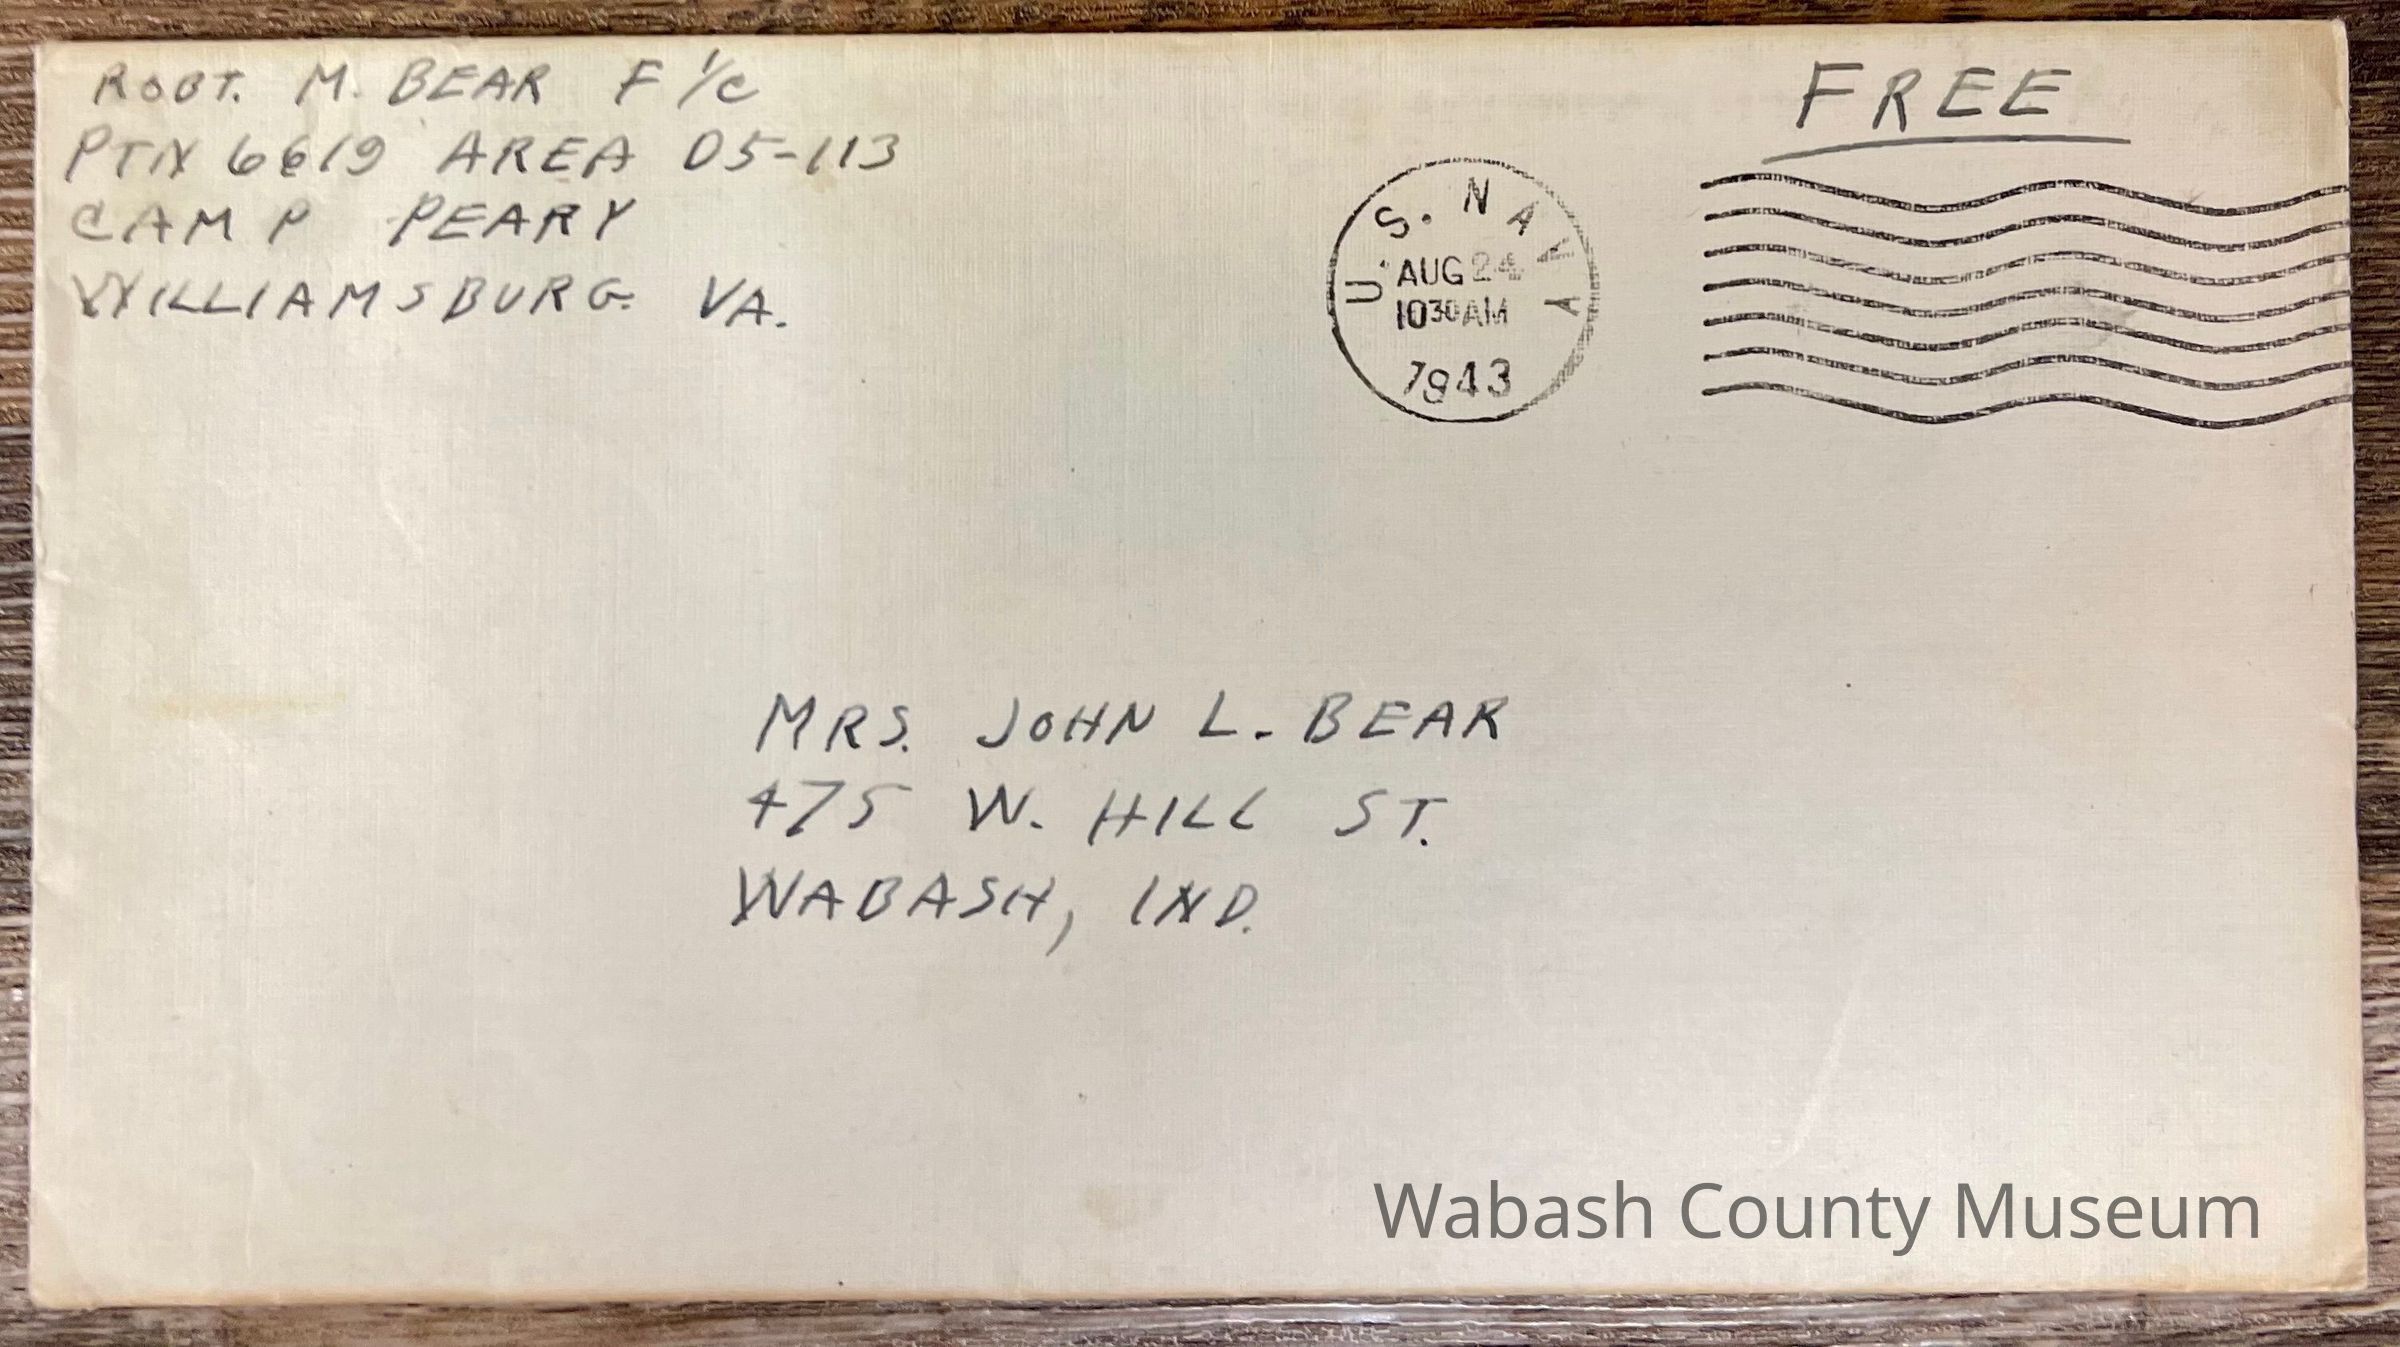 ROBT. M. BEAR F 1/C
PTN 6619 AREA D5-113
CAMP PEARY
WILLIAMSBURG. VA.
FREE
U.S. NAVY
AUG 24
10 30 AM
1943
MRS. JOHN L. BEAR
475 W. HILL ST.
WABASH, IND.
Wabash County Museum